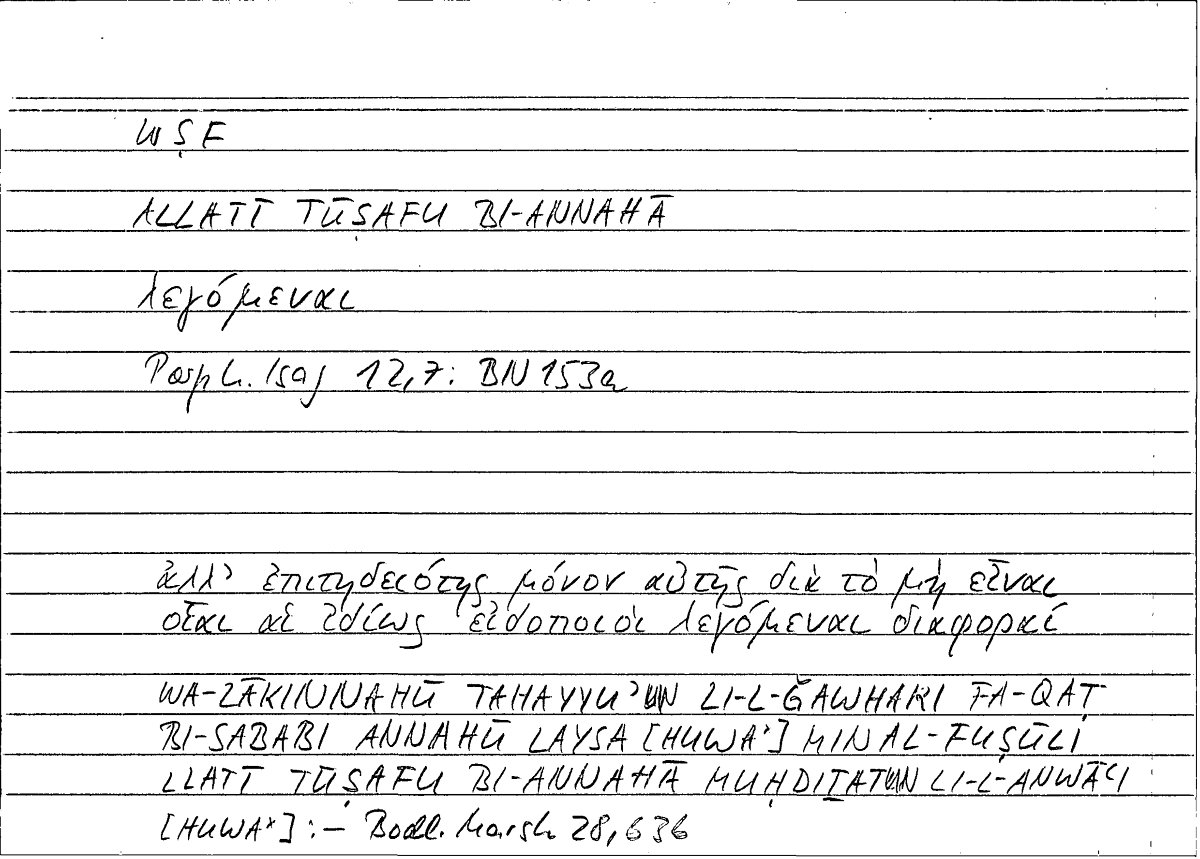 WṢF
ALLATĪ TŪṢAFU BI-ANNAHĀ
λεγόμεναι
Porph. Isag 12,7: BN 153a
ἀλλ’ ἐπιτηδειότης μόνον αὐτῆς διὰ τὸ μὴ εἶναι
οἷαι αἱ ἰδίως εἰδοποιοὶ λεγόμεναι διαφοραί
WA-LĀKINNAHŪ TAHAYYUʾUN LI-L-ǦAWHARI FA-QAṬ
BI-SABABI ANNAHŪ LAYSA [HUWAˣ] MIN AL-FUṢŪLI
LLATĪ TŪṢAFU BI-ANNAHĀ MUḤDIṮATUN LI-L-ANWĀʿI
[HUWAˣ]:– Bodl. Marsh 28,636